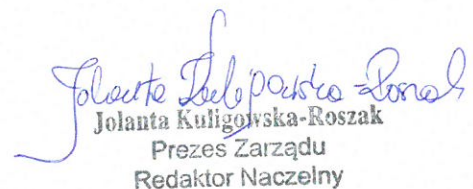 Jolanta Kuligowska-Roszak
Jolanta Kuligowska-Roszak
Prezes Zarządu
Redaktor Naczelny